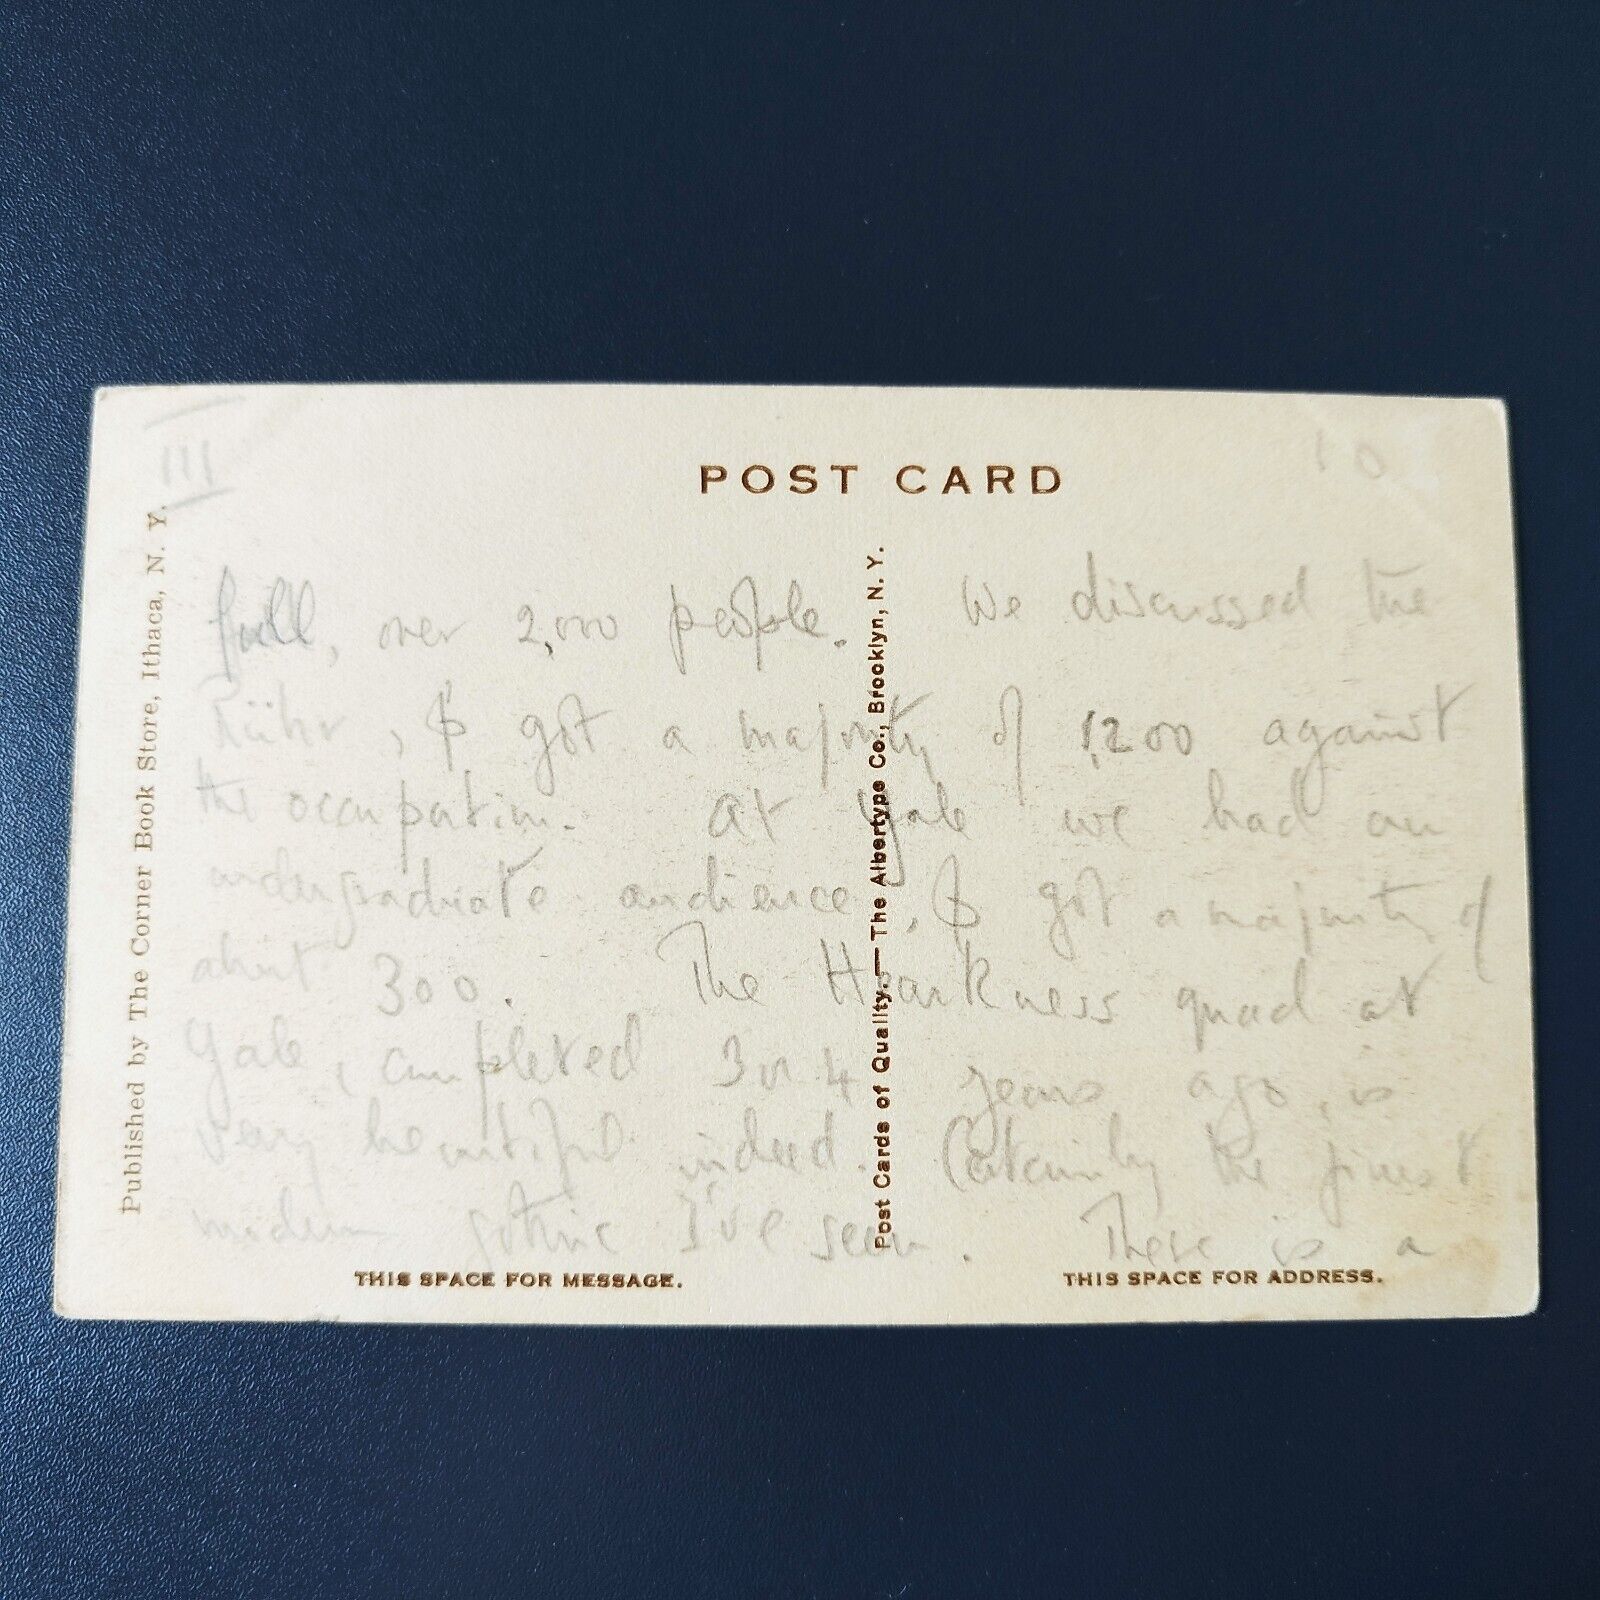 III
10
POST CARD
Published by The Corner Book Store, Ithaca, N. Y.
Post Cards of Quality.—The Albertype Co., Brooklyn, N. Y.
full, over 2,000 people. We discussed the
Rühr, & got a majority of 1,200 against
the occupation. At Yale we had an
undergraduate audience, & got a majority of
about 300. The Harkness quad at
Yale, completed 3 or 4 years ago, is
very beautiful indeed. Certainly the finest
modern gothic I've seen. There is a
THIS SPACE FOR MESSAGE.
THIS SPACE FOR ADDRESS.